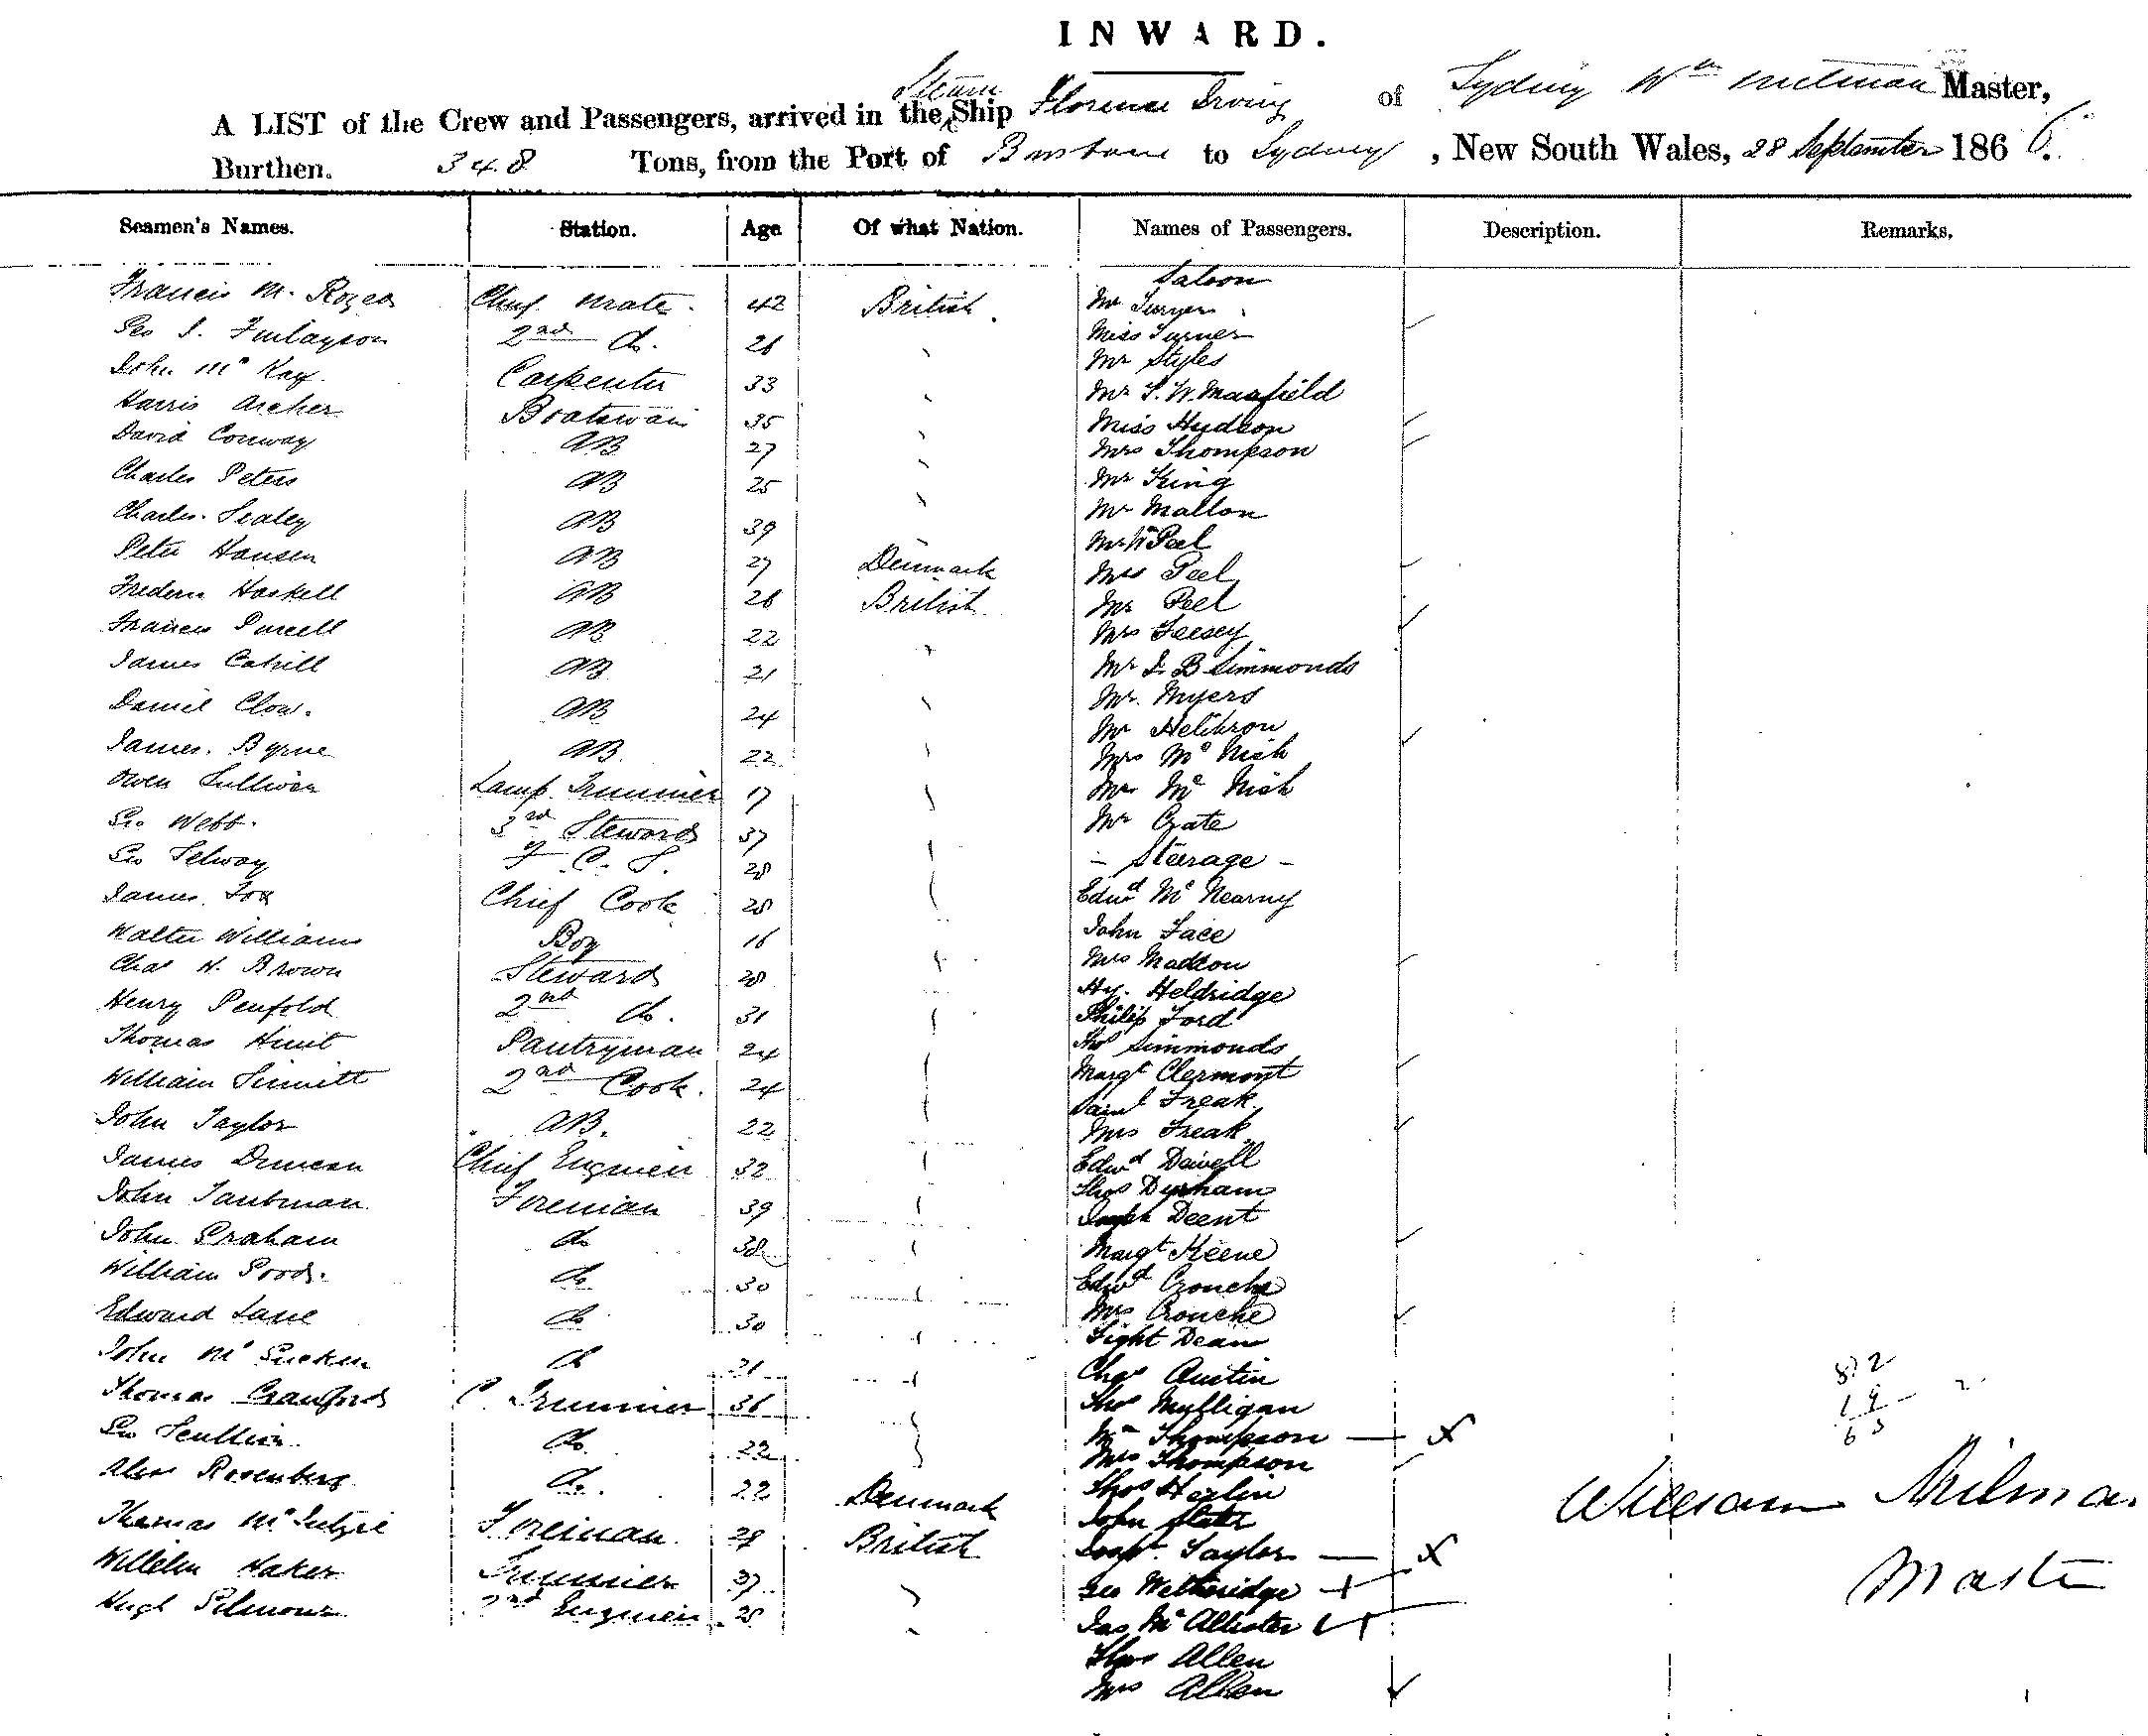 INWARD.
A LIST of the Crew and Passengers, arrived in the Steam Ship Florence Irving of Sydney Wm Milman Master,
Burthen. 348 Tons, from the Port of Brisbane to Sydney, New South Wales, 28 September 1866.
Seamen's Names. Station. Age Of what Nation. Names of Passengers. Description. Remarks.
Saloon
Francis M. Rogers Chief Mate. 42 British Mr Turner
Geo S. Finlayson 2nd Do. 26 Miss Turner
John Mc Kay 33 Carpenter Mr Styles
Harris Archer Boatswain 35 Mr S. W. Maxfield
David Conway AB 27 Miss Hudson
Mrs Thompson
Charles Peters AB 25 Mr King
Charles Sealey AB 39 Mr Mallon
Mr Wm Peel
Peter Hansen AB 27 Denmark Mrs Peel
Frederic Haskell AB 26 British Mr Peel
Francis Purcell AB 22 Mrs Feesey
James Cahill AB 21 Mr S B Simmonds
Daniel Clow. AB 24 Mr. Myers
Mr Heilbron
James. Byrne AB. 22 Mrs Mc Nish
Owen Sullivan Lamp Trimmer 17 Mr Mc Nish
Geo Webb. 3rd Steward 37 Mr Crate
Geo Selway F. C. S. 28 - Steerage -
James Fox Chief Cook 28 Edwd Mc Nearny
Walter Williams Boy 16 John Face
Chas H. Brown Steward 28 Mrs Maddon
Hy. Heldridge
Henry Penfold 2nd Do. 31 Philip Ford
Thomas Hunt Pantryman 24 Thos Simmonds
William Sinnitt 2nd Cook. 24 Margt Clermont
Saml Freak
John Taylor AB. 22 Mrs Freak
James Duncan Chief Engineer 32 Edwd Dowell
John Taubman Foreman 39 Thos Durham
Joseph Deent
John Graham Do 38 Margt Keene
William Good. Do 30 Edwd Crouche
Edward Lane Do 30 Mrs Crouche
Dean
John Mc Do 21 Chas Austin
Thomas Crawford C. Trimmer 36 Thos Mulligan
Geo Scullion Do. 22 Mr Thompson
Mrs Thompson
Alex Rosenberg Do. 22 Denmark Thos Harlin
John Slater
Thomas Mc Foreman 28 British Josph. Taylor
Wilhelm Haker Trimmer 37 Geo Wetheridge
Hugh Gilmour 2nd Engineer 28 Jas Mc Allister
Thos Allen
Mrs Allen
82
19
63
William Milman
Master